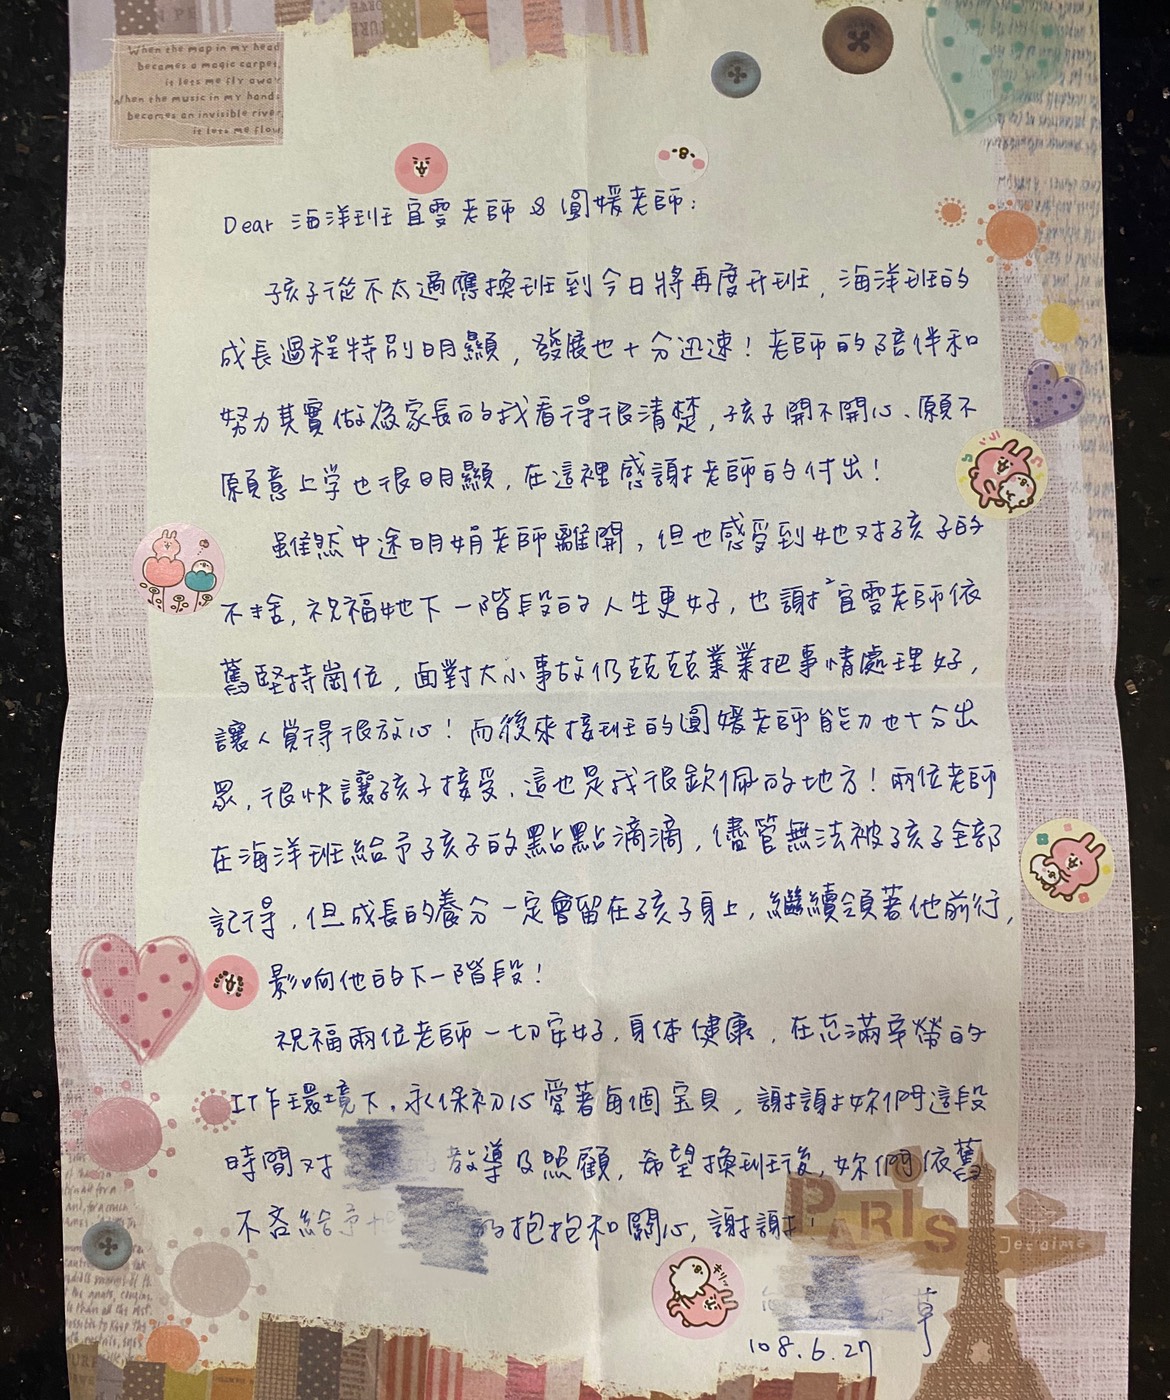 When the map in my head
becomes a magic carpet,
it lets me fly away
When the music in my hands
becomes an invisible river,
it lets me flow
Dear 海洋班宜雯老師 & 圓媛老師：
孩子從不太適應換班到今日將再度升班，海洋班的
成長過程特別明顯，發展也十分迅速！老師的陪伴和
努力其實做為家長的我看得很清楚，孩子開不開心、願不
願意上学也很明顯，在這裡感謝老師的付出！
雖然中途明娟老師離開，但也感受到她对孩子的
不捨，祝福她下一階段的人生更好，也謝謝宜雯老師依
舊堅持崗位，面對大小事故仍兢兢業業把事情處理好，
讓人覺得很放心！而後來接班的圓媛老師能力也十分出
眾，很快讓孩子接受，這也是我很欽佩的地方！兩位老師
在海洋班給予孩子的點點滴滴，儘管無法被孩子全部
記得，但成長的養分一定會留在孩子身上，繼續領著他前行，
影响他的下一階段！
祝福兩位老師一切安好，身体健康，在充滿辛勞的
工作環境下，永保初心愛著每個宝贝，謝謝妳們這段
時間对 教導及照顧，希望換班後，妳們依舊
不吝給予 的抱抱和關心，謝謝！
PARIS
Jeraime
キリッ
草
108.6.27